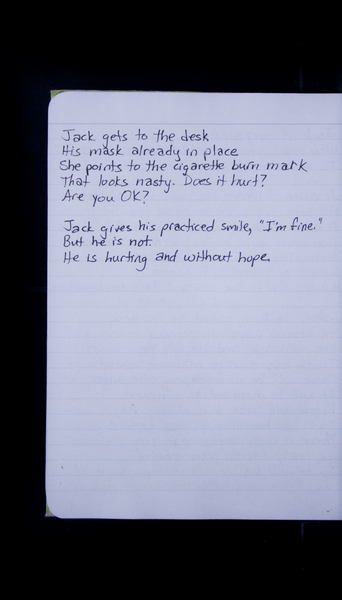 Jack gets to the desk
His mask already in place
She points to the cigarette burn mark
That looks nasty. Does it hurt?
Are you OK?
Jack gives his practiced smile, "I'm fine."
But he is not.
He is hurting and without hope.